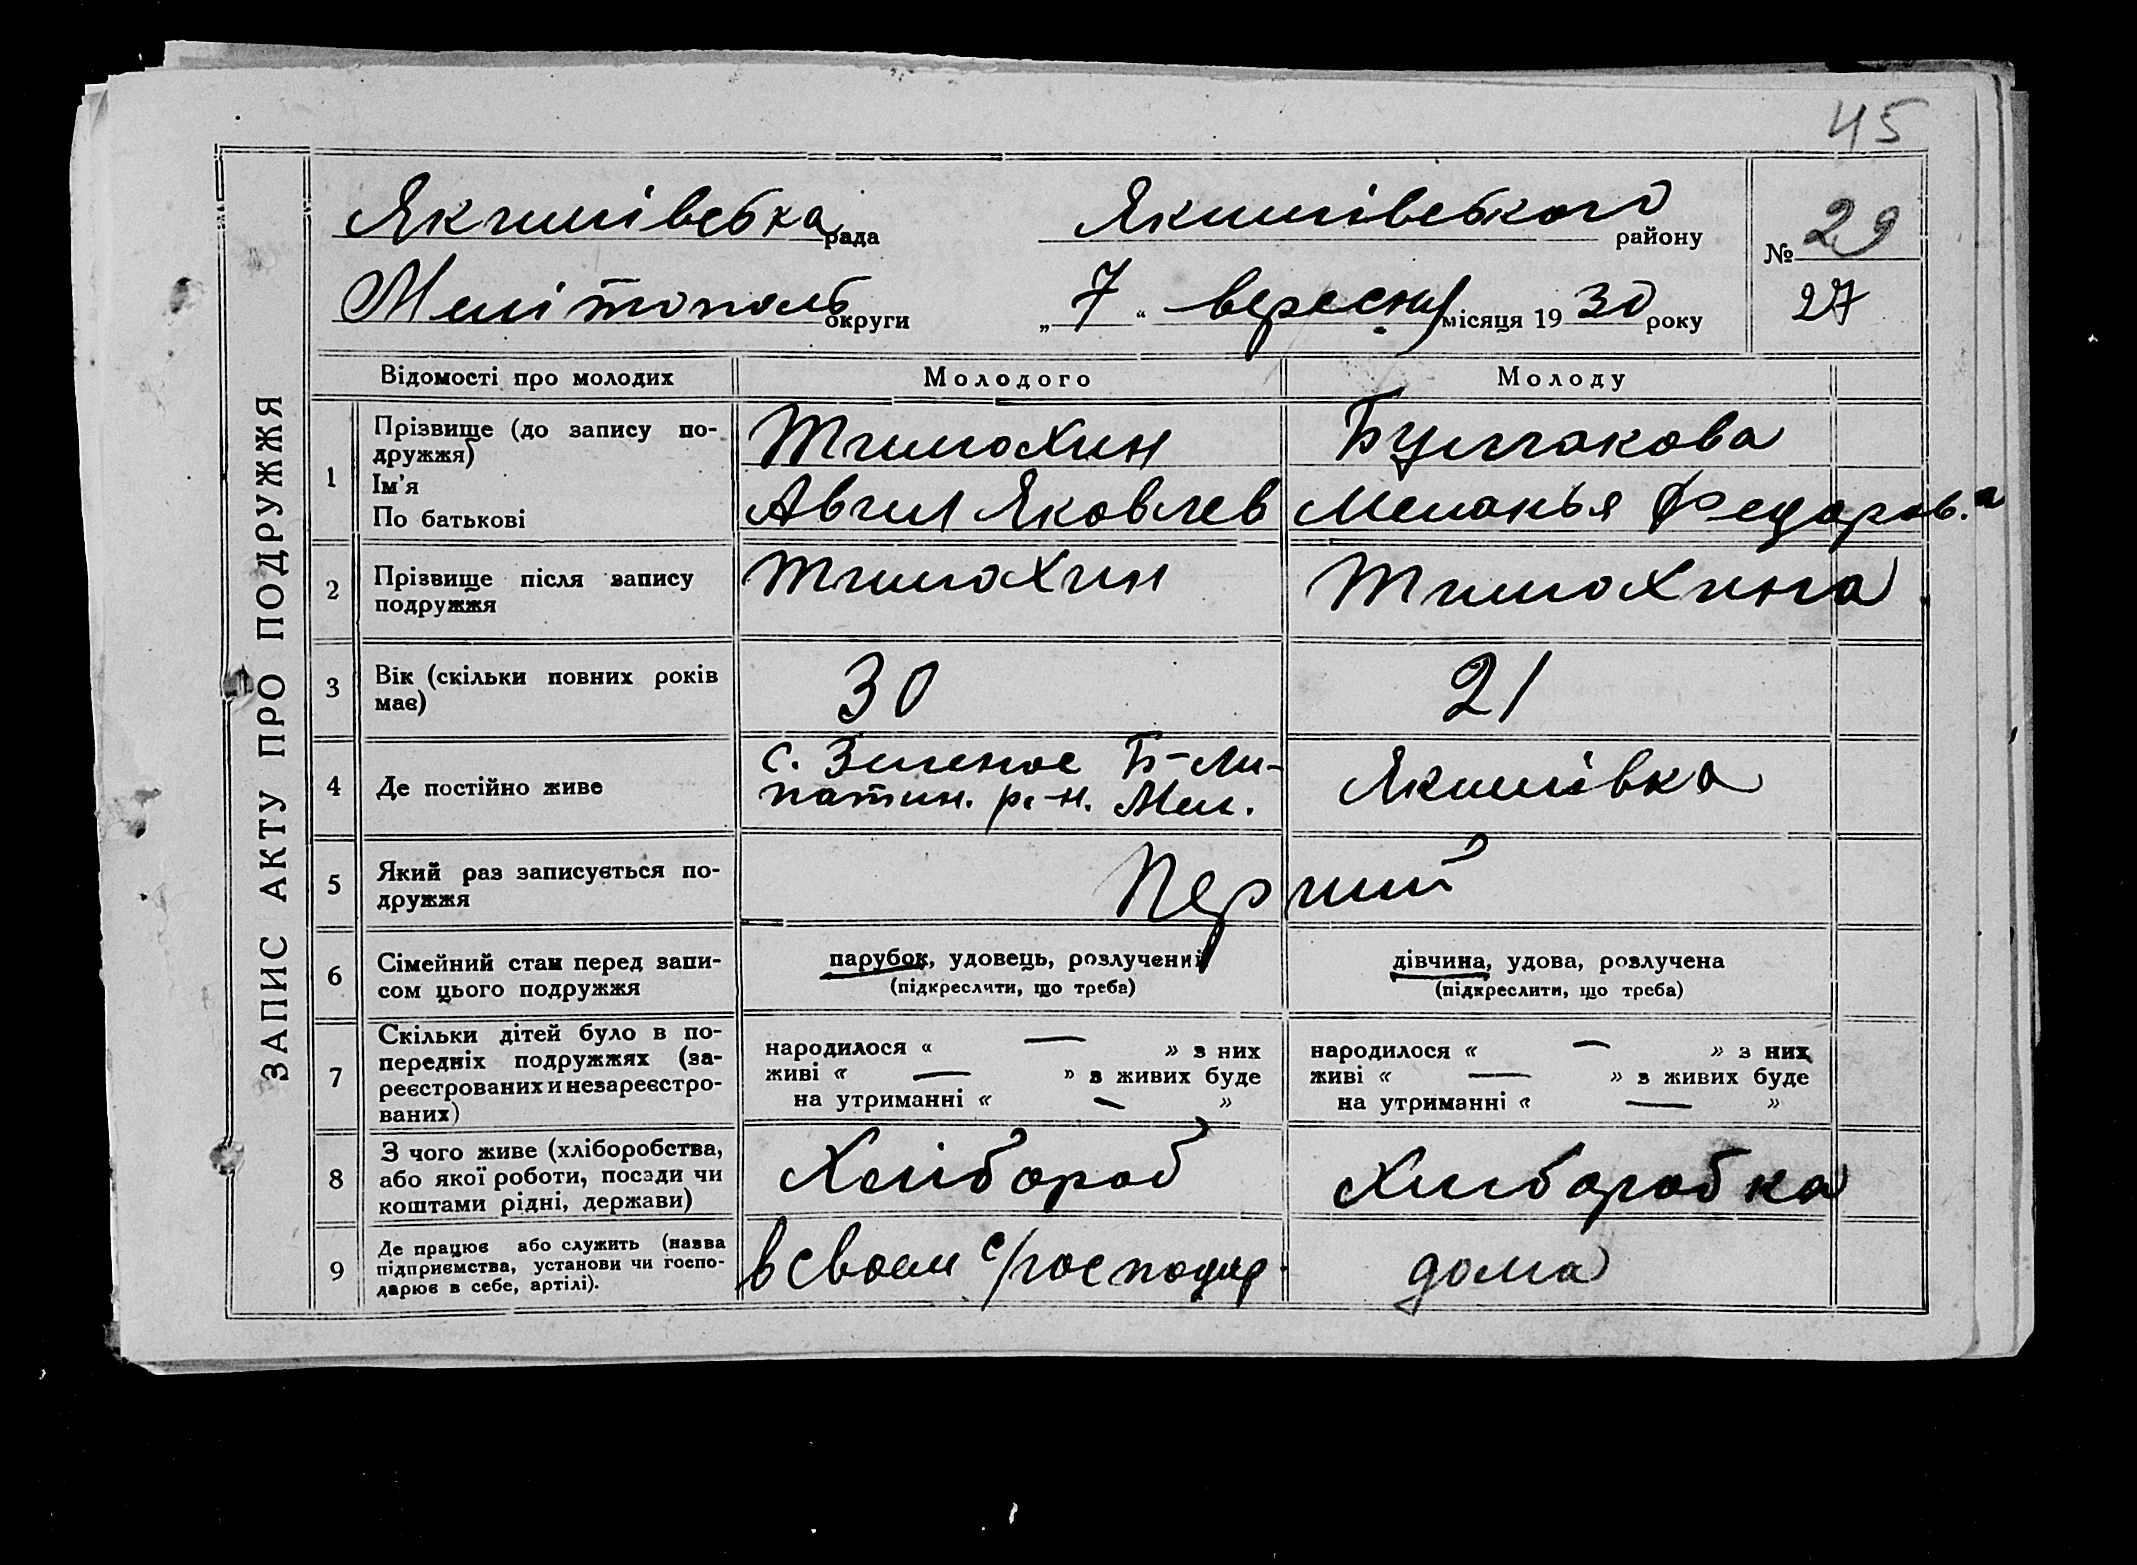 45
ЗАПИС АКТУ ПРО ПОДРУЖЖЯ
Якимівська рада Якимівського району № 29
Мелітополь округи „7“ вересня місяця 1930 року 27
Відомості про молодих Молодого Молоду
1 Прізвище (до запису по-
дружжя)
Тимохин Бутакова
Ім’я
По батькові
Авил Яковлев Меланья Федоров.а
2 Прізвище після запису
подружжя
Тимохин Тимохина
3 Вік (скільки повних років
має)
30 21
4 Де постійно живе
с. Зеленое Б-Ле-
патих. р-н. Мел.
Якимівка
5 Який раз записується по-
дружжя
Перший
6 Сімейний стан перед запи-
сом цього подружжя
парубок, удовець, розлучений
(підкреслити, що треба)
дівчина, удова, розлучена
(підкреслити, що треба)
7 Скільки дітей було в по-
передніх подружжях (за-
реєстрованих и незареєстро-
ваних)
народилося « — » з них
живі « — » з живих буде
на утриманні « — »
народилося « — » з них
живі « — » з живих буде
на утриманні « — »
8 З чого живе (хліборобства,
або якої роботи, посади чи
коштами рідні, держави)
Хлібороб Хлиборобка
9 Де працює або служить (назва
підприємства, установи чи госпо-
дарює в себе, артілі).
в своем с/господар. дома